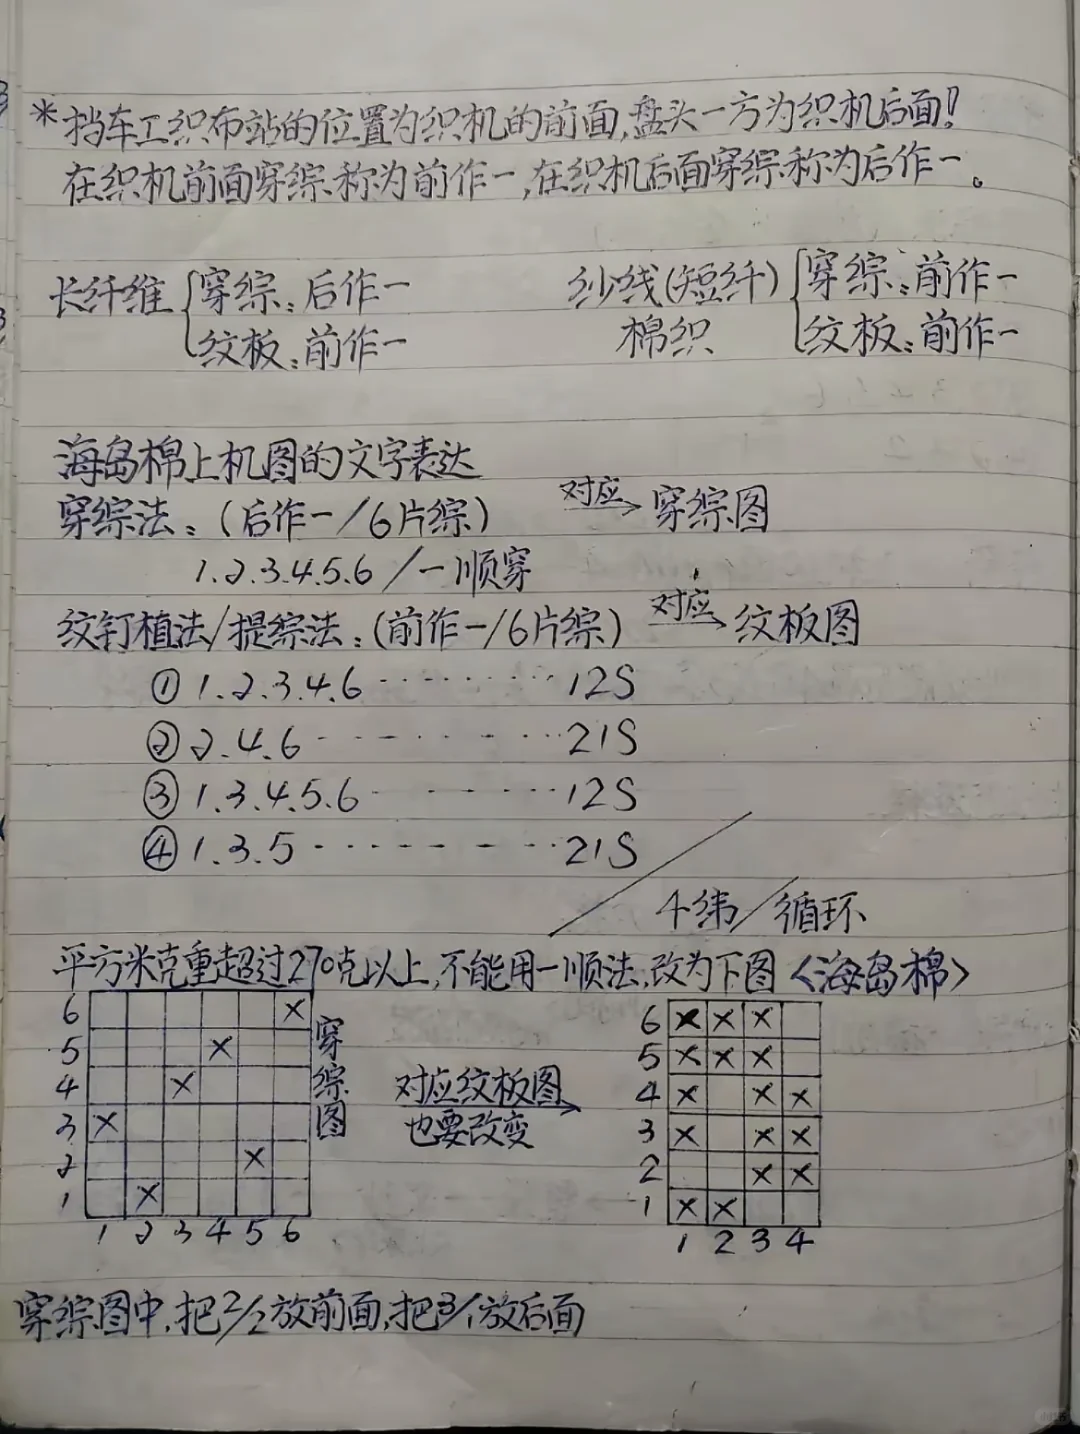 *挡车工织布站的位置为织机的前面,盘头一方为织机后面!
在织机前面穿综称为前作一,在织机后面穿综称为后作一。
长纤维{穿综:后作一 纱线(短纤){穿综:前作一
纹板:前作一 棉织 纹板:前作一
海岛棉上机图的文字表达
穿综法:(后作一/6片综) 对应→穿综图
1.2.3.4.5.6/一顺穿
纹钉植法/提综法:(前作一/6片综) 对应→纹板图
①1.2.3.4.6········12S
②2.4.6········21S
③1.3.4.5.6········12S
④1.3.5········21S
4纬/循环
平方米克重超过270克以上,不能用一顺法,改为下图<海岛棉>
6 × 穿综图 6 × × ×
5 × 5 × × ×
4 × 对应纹板图→ 4 × × ×
3 × 也要改变 3 × × ×
2 × 2 × ×
1 × 1 × ×
1 2 3 4 5 6 1 2 3 4
穿综图中,把2/2放前面,把3/1放后面